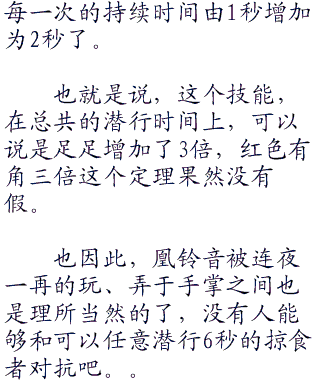 每一次的持续时间由1秒增加
为2秒了。
也就是说，这个技能，
在总共的潜行时间上，可以
说是足足增加了3倍，红色有
角三倍这个定理果然没有
假。
也因此，凰铃音被连夜
一再的玩、弄于手掌之间也
是理所当然的了，没有人能
够和可以任意潜行6秒的掠食
者对抗吧。。